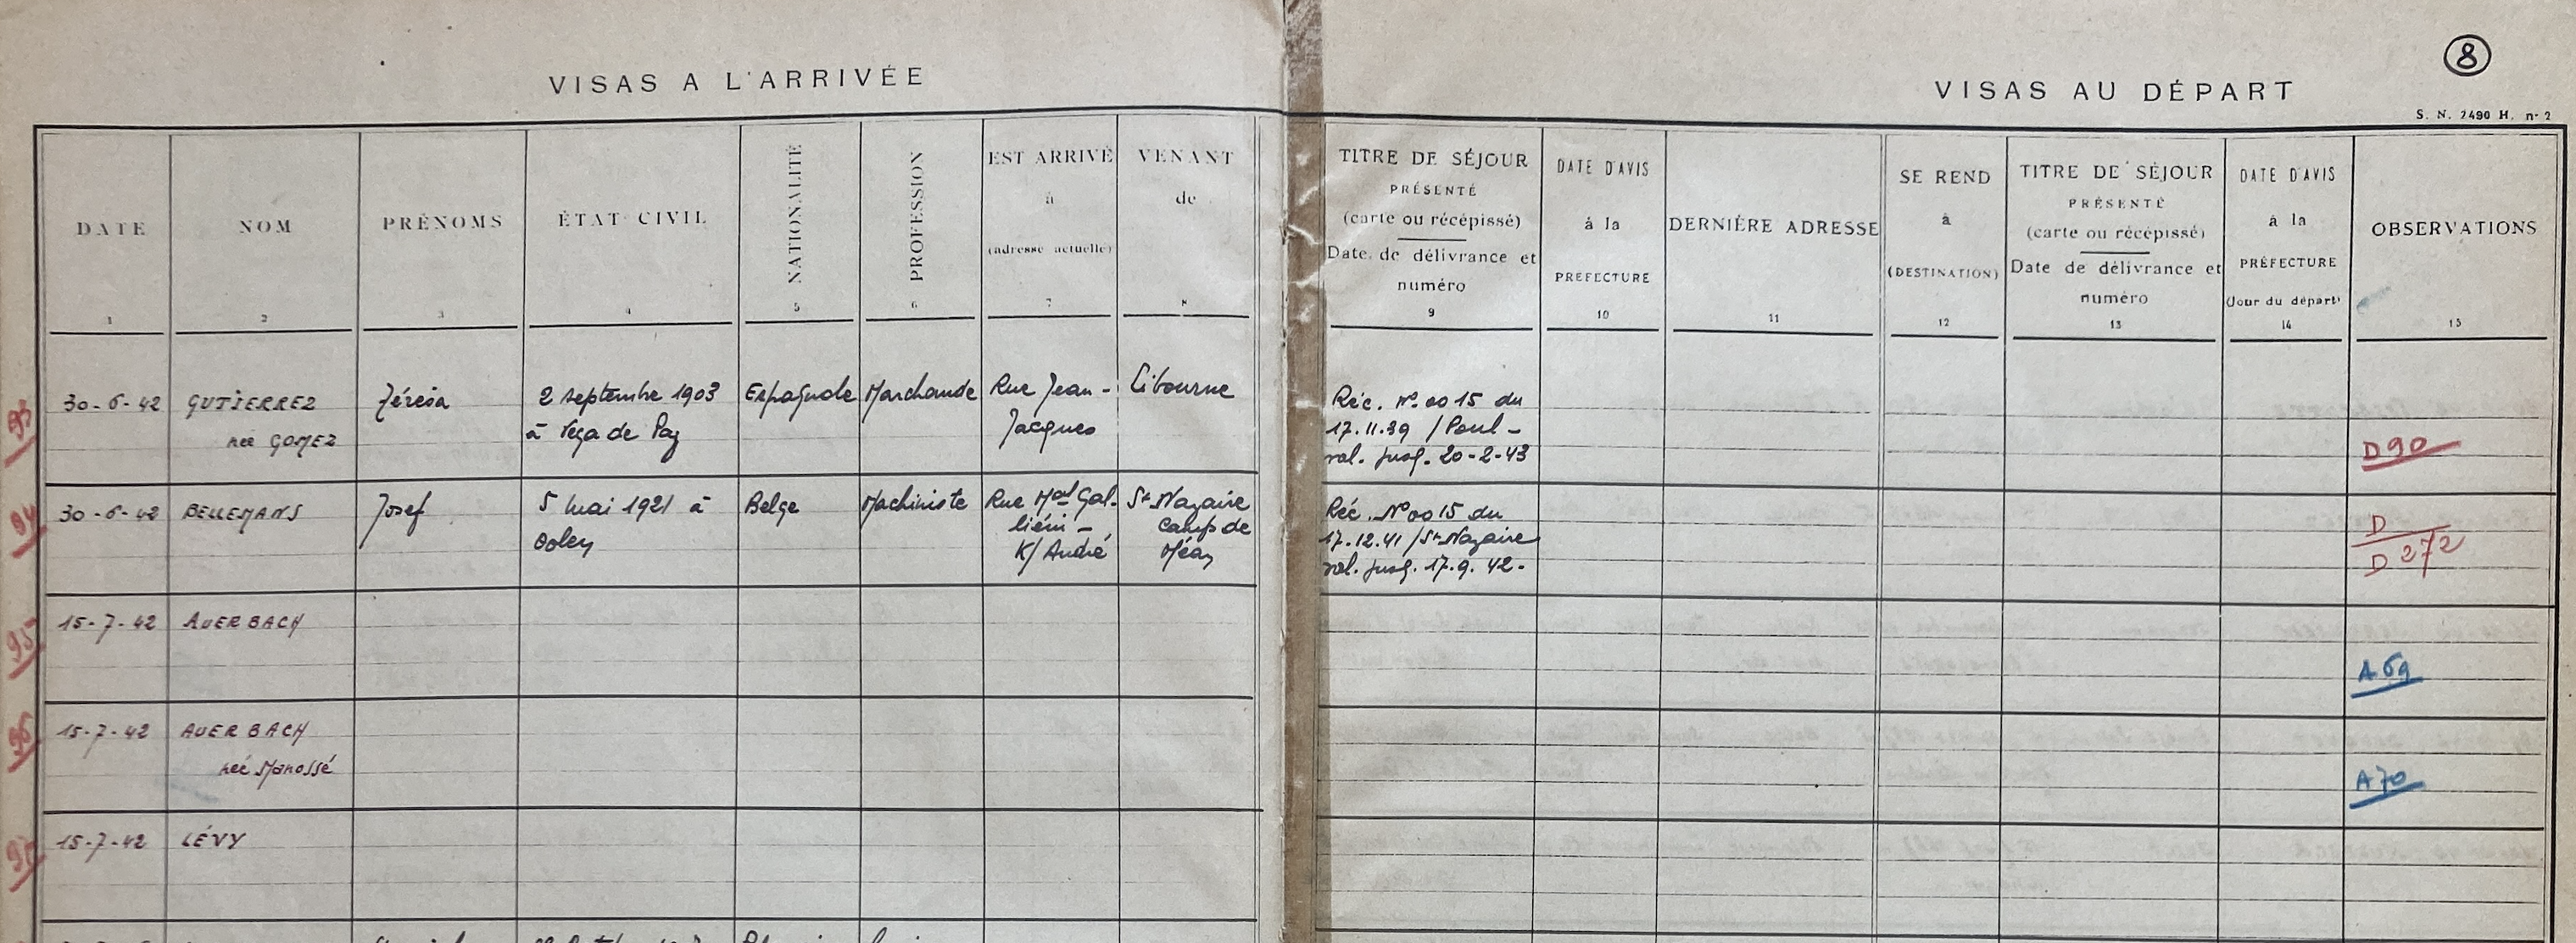 8
VISAS A L'ARRIVÉE
VISAS AU DÉPART
S. N. 2490 H. n° 2
DATE
1
NOM
2
PRÉNOMS
3
ÉTAT CIVIL
4
NATIONALITÉ
5
PROFESSION
6
EST ARRIVÉ
à
(adresse actuelle)
7
VENANT
de
8
TITRE DE SÉJOUR
PRÉSENTÉ
(carte ou récépissé)
Date de délivrance et
numéro
9
DATE D'AVIS
à la
PREFECTURE
10
DERNIÈRE ADRESSE
11
SE REND
à
(DESTINATION)
12
TITRE DE SÉJOUR
PRÉSENTÉ
(carte ou récépissé)
Date de délivrance et
numéro
13
DATE D'AVIS
à la
PRÉFECTURE
(Jour du départ)
14
OBSERVATIONS
15
93
30-6-42
GUTIERREZ
née GOMEZ
Térésa
2 septembre 1903
à Vega de Paz
Espagnole
Marchande
Rue Jean-
Jacques
Libourne
Réc. N° 0015 du
17.11.39 / Paul-
val. jusq. 20-2-43
D90
94
30-6-42
BELLEMANS
Josef
5 mai 1921 à
Oolen
Belge
Machiniste
Rue Mal Gal-
liéni-
K/André
St Nazaire
camp de
Méan
Réc. N° 0015 du
17.12.41 / St Nazaire
val. jusq. 17.9.42.
D
D272
95
15-7-42
AUERBACH
A69
96
15-7-42
AUERBACH
née Manossé
A70
97
15-7-42
LÉVY